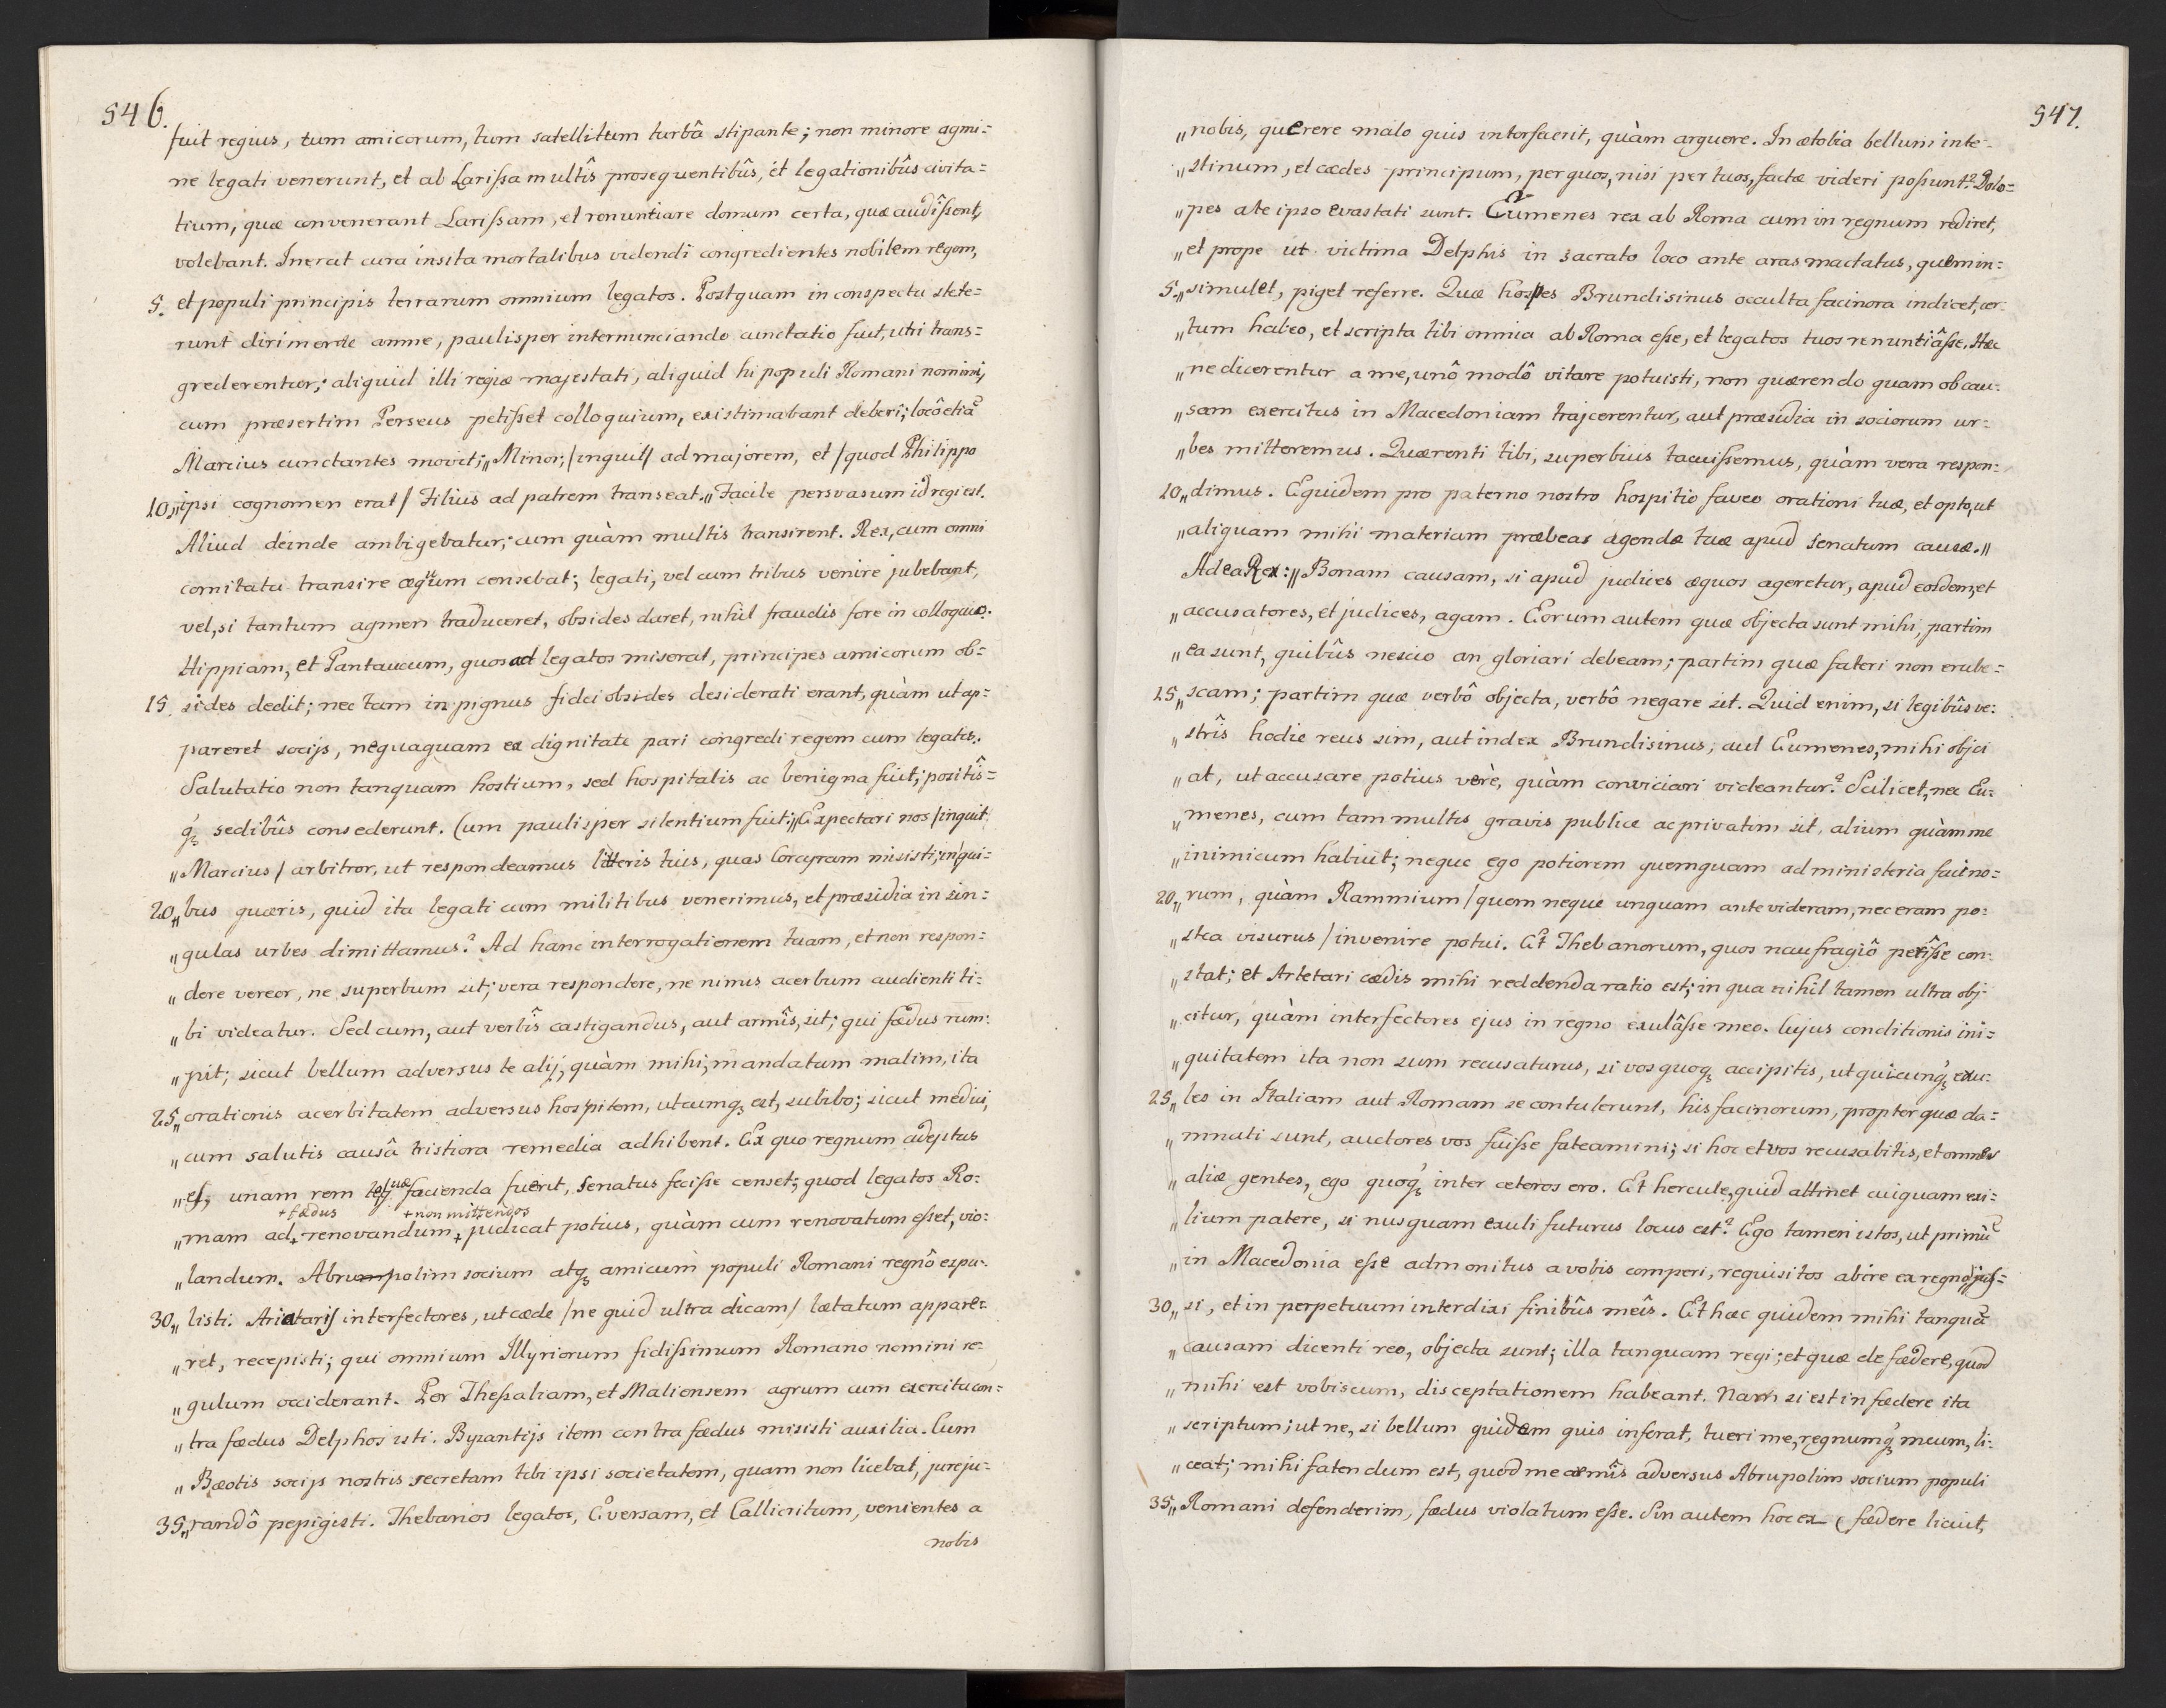 546.
fuit regius, tum amicorum, tum satellitum turbâ stipante; non minore agmi=
ne legati venerunt, et ab Larissa multîs prosequentibûs, et legationibûs civita=
tium, quæ convenerant Larissam, et renuntiare domum certa, quæ audîssent,
volebant. Inerat cura insita mortalibus videndi congredientes nobilem regem,
5. et populi principis terrarum omnium legatos. Postquam in conspectu stete=
runt dirimente amne, paulisper internunciando cunctatio fuit, utri trans=
grederentur; aliquid illi regiæ majestati, aliquid hi populi Romani nomini,
cum præsertim Perseus petisset colloquium, existimabant deberi; locô etiã
Marcius cunctantes movit; „Minor, /inquit/ ad majorem, et /quod Philippo
10. „ipsi cognomen erat/ Filius ad patrem transeat.„ Facile persvasum id regi est.
Aliud deinde ambigebatur; cum quàm multis transirent. Rex, cum omni
comitatu transire æquum censebat; legati, vel cum tribus venire jubebant,
vel, si tantum agmen traduceret, obsides daret, nihil fraudis fore in colloquio.
Hippiam, et Pantaucum, quos ad legatos miserat, principes amicorum ob=
15. sides dedit; nec tam in pignus fidei obsides desiderati erant, quàm ut ap=
pareret socijs, nequaquam ex dignitate pari congredi regem cum legatis.
Salutatio non tanquam hostium, sed hospitalis ac benigna fuit; positîs=
q́ꝫ sedibûs consederunt. Cum paulisper silentium fuit: „Expectari nos /inquit
„Marcius/ arbitror, ut respondeamus litteris tuis, quas Corcyram misisti; in qui=
20. „bus quæris, quid ita legati cum militibus venerimus, et præsidia in sin=
„gulas urbes dimittamus? Ad hanc interrogationem tuam, et non respon=
„dere vereor, ne superbum sit; vera respondere, ne nimis acerbum audienti ti=
„bi videatur. Sed cum, aut verbîs castigandus, aut armîs, sit; qui fædus rum=
„pit; sicut bellum adversus te alij, quàm mihi, mandatum malim, ita
25. „orationis acerbitatem adversus hospitem, utcumqꝫ est, subibo; sicut medici,
„cum salutis causâ tristiora remedia adhibent. Ex quo regnum adeptus
„es, unam rem quæ facienda fuerit, Senatus fecisse censet; quod legatos Ro=
+fædus +non mittendos
„mam ad+renovandum+judicat potius, quàm cum renovatum esset, vio=
„landum. Abrupolim socium atqꝫ amicum populi Romani regnô expu=
30. „listi. Artetari interfectores, ut cæde /ne quid ultra dicam/ lætatum appare=
„ret, recepisti; qui omnium Illyriorum fidissimum Romano nomini re=
„gulum occiderant. Per Thessaliam, et Maliensem agrum cum exercitu con=
„tra fædus Delphos isti. Byzantijs item contra fædus misisti auxilia. Cum
„Bæotis socijs nostris secretam tibi ipsi societatem, quam non licebat, jureju=
35. „randô pepigisti. Thebanos legatos, Eversam, et Callicritum, venientes a
nobis
547.
„nobis, quærere malo quis interfecerit, quàm arguere. In ætolia bellum inte=
„stinum, et cædes principum, per quos, nisi per tuos, factæ videri possunt? Dolo=
„pes a te ipso evastati sunt. Eumenes rex ab Roma cum in regnum rediret,
„et prope ut victima Delphis in sacrato loco ante aras mactatus, quem in=
5. „simulet, piget referre. Quæ hospes Brundisinus occulta facinora indicet, cer=
„tum habeo, et scripta tibi omnia ab Roma esse, et legatos tuos renuntiâsse. Hæc
„ne dicerentur a me, unô modô vitare potuisti, non quærendo quam ob cau=
„sam exercitus in Macedoniam trajcerentur, aut præsidia in sociorum ur=
„bes mitteremus. Quærenti tibi, superbius tacuissemus, quàm vera respon=
10. „dimus. Equidem pro paterno nostro hospitio faveo orationi tuæ, et opto, ut
„aliquam mihi materiam præbeas agendæ tuæ apud Senatum causæ.„
Ad ea Rex: „Bonam causam, si apud judices æquos ageretur, apud eosdem, et
„accusatores, et judices, agam. Eorum autem quæ objecta sunt mihi, partim
„ea sunt, quibûs nescio an gloriari debeam; partim quæ fateri non erube=
15. „scam; partim quæ verbô objecta, verbô negare sit. Quid enim, si legibûs ve=
„strîs hodie reus sim, aut index Brundisinus, aut Eumenes, mihi objci
„at, ut accusare potius verè, quàm conviciari videantur? Scilicet, nec Eu=
„menes, cum tam multis gravis publice ac privatim sit, alium quàm me
„inimicum habuit; neque ego potiorem quemquam ad ministeria facino=
20. „rum, quàm Rammium /quem neque unquam ante videram, nec eram po=
„stea visurus/ invenire potui. Et Thebanorum, quos naufragiô perîsse con=
„stat; et Artetari cædis mihi reddenda ratio est; in qua nihil tamen ultra obj=
„citur, quàm interfectores ejus in regno exulâsse meo. Cujus conditionis ini=
„quitatem ita non sum recusaturus, si vos quoqꝫ accipitis, ut quicunq́ꝫ exu=
25. „les in Italiam aut Romam se contulerunt, his facinorum, propter quæ da=
„mnati sunt, auctores vos fuisse fateamini; si hoc et vos recusabitis, et omnes
„aliæ gentes, ego quoq́ꝫ inter ceteros ero. Et hercule, quid attinet cuiquam exi=
„lium patere, si nusquam exuli futurus locus est? Ego tamen istos, ut primũ
„in Macedonia esse admonitus a vobis comperi, requisitos abire ex regno jus=
30. „si, et in perpetuum interdixi finibûs meîs. Et hæc quidem mihi tanquã
„causam dicenti reo, objecta sunt; illa tanquam regi; et quæ de fædere, quod
„mihi est vobiscum, disceptationem habeant. Nam si est in fædere ita
„scriptum; ut ne, si bellum quidem quis inferat, tueri me, regnumq́ꝫ meum, li=
„ceat; mihi fatendum est, quod me armîs adversus Abrupolim socium populi
35. „Romani defenderim, fædus violatum esse. Sin autem hoc ex fædere licuit,